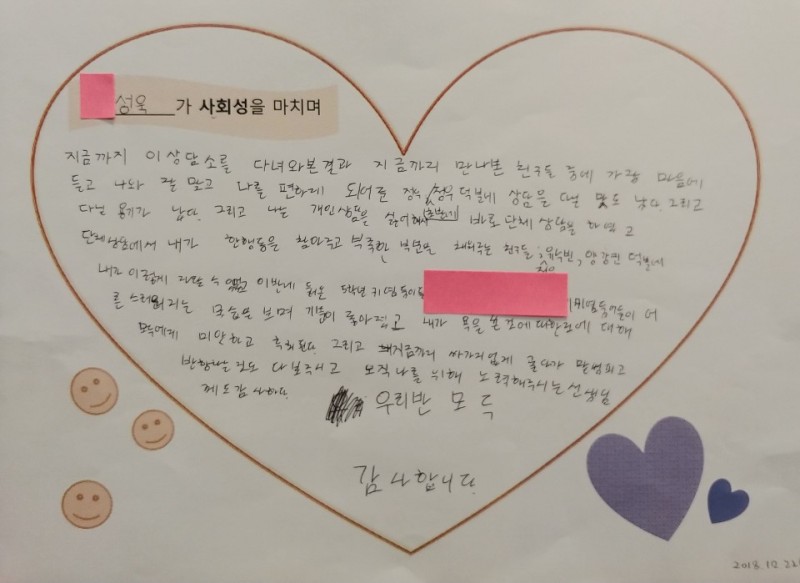 성욱 가 사회성을 마치며
지금까지 이 상담소를 다녀와본결과 지금까지 만나본 친구들 중에 가장 마음에
들고 나와 잘 맞고 나를 편하게 되어준 정우 덕분에 상담을 다닐 맛도 났다. 그리고
다닐 용기가 났다. 그리고 나는 개인상담을 싫어해서 초반에 바로 단체 상담을 하였고
단체상담에서 내가 한행동을 참아주고 부족한 부면을 채워주는 친구들 덕분에
내가 이렇게 자랄 수 있었고 이반에 들어온 5학년 귀염둥이들
귀염둥이들이 어
른스러워지는 모습을 보며 기분이 좋아졌고 내가 욕을 한것에 대한것에 대해
모두에게 미안하고 후회된다. 그리고 지금까지 싸가지없게 굴다가 말썽피고
반항난것도 다 보주시고 오직나를 위해 노력해주시는 선생님
께도 감사하다.
우리반 모두
감사합니다.
2018.12.22